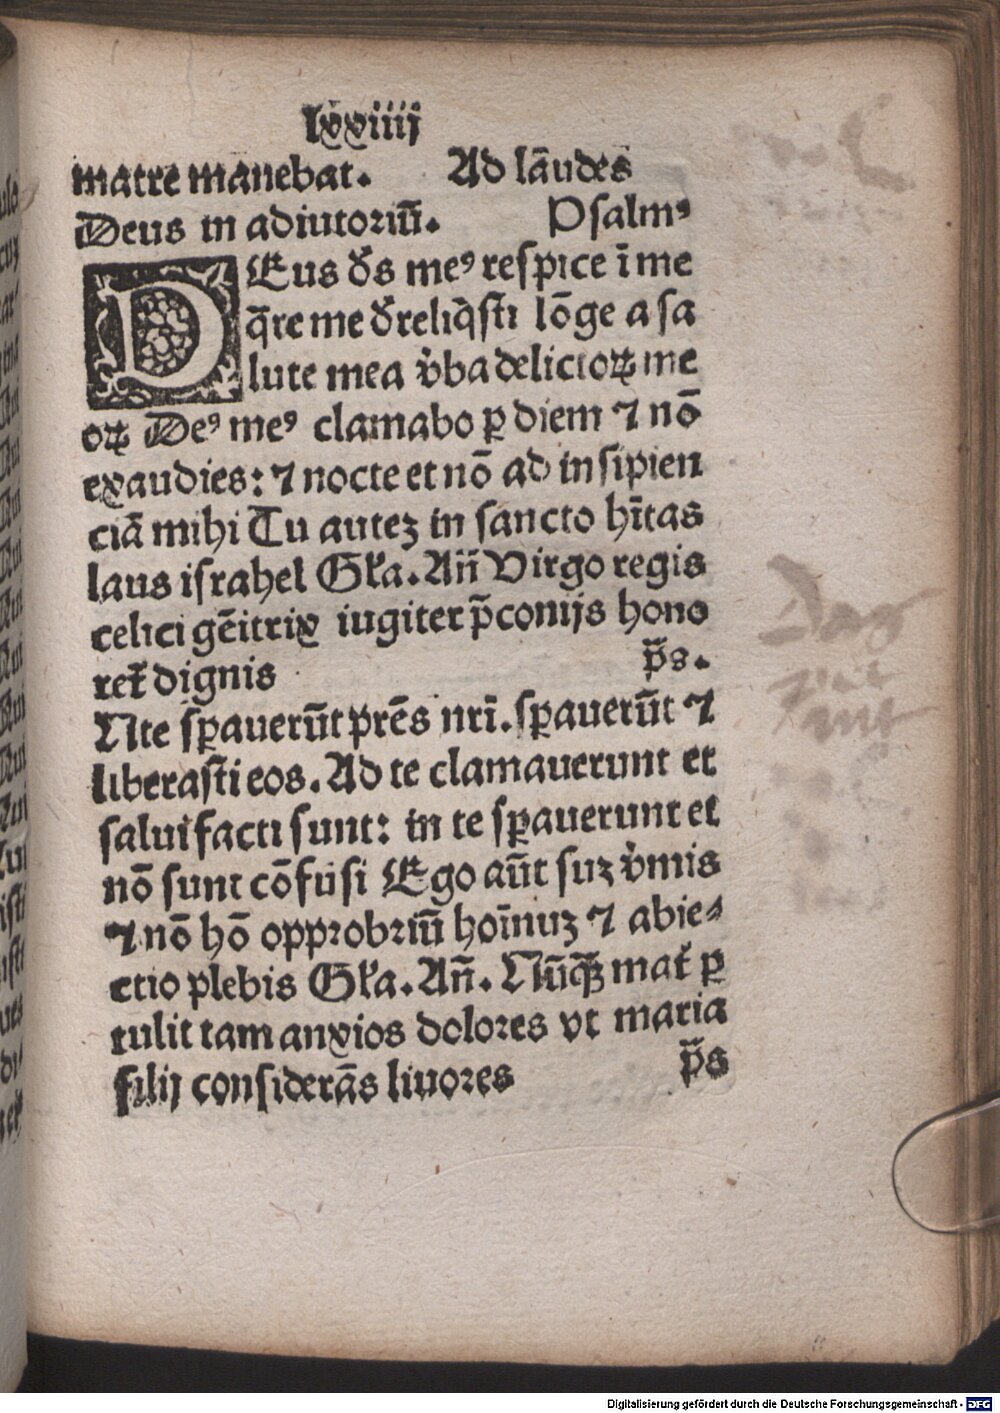 lxxiiij
matre manebat. Ad lāudes
Deus in adiutoriū. Psalmꝰ
DEus ds̄ meꝰ respice ī me
q̄re me d̄reliq̄sti lōge a sa
lute mea v̄ba delictoꝝ me
oꝝ Deꝰ meꝰ clamabo ꝑ diem ⁊ nō
exaudies: ⁊ nocte et nō ad insipien
ciā mihi Tu autez in sancto hītas
laus israhel Gl̄a. Añ Virgo regis
celici gēitrix iugiter p̄conijs hono
ret᷑ dignis p̄s.
INte sꝑauerūt prēs nr̄i. sꝑauerūt ⁊
liberasti eos. Ad te clamauerunt et
salui facti sunt: in te sꝑauerunt et
nō sunt cōfusi Ego aūt suz v̄mis
⁊ nō hō opprobriū hoīnuz ⁊ abie-
ctio plebis Gl̄a. Añ. Nūqꝫ mat᷑ ꝑ
tulit tam anxios dolores vt maria
filij considerās liuores p̄s
Digitalisierung gefördert durch die Deutsche Forschungsgemeinschaft - DFG